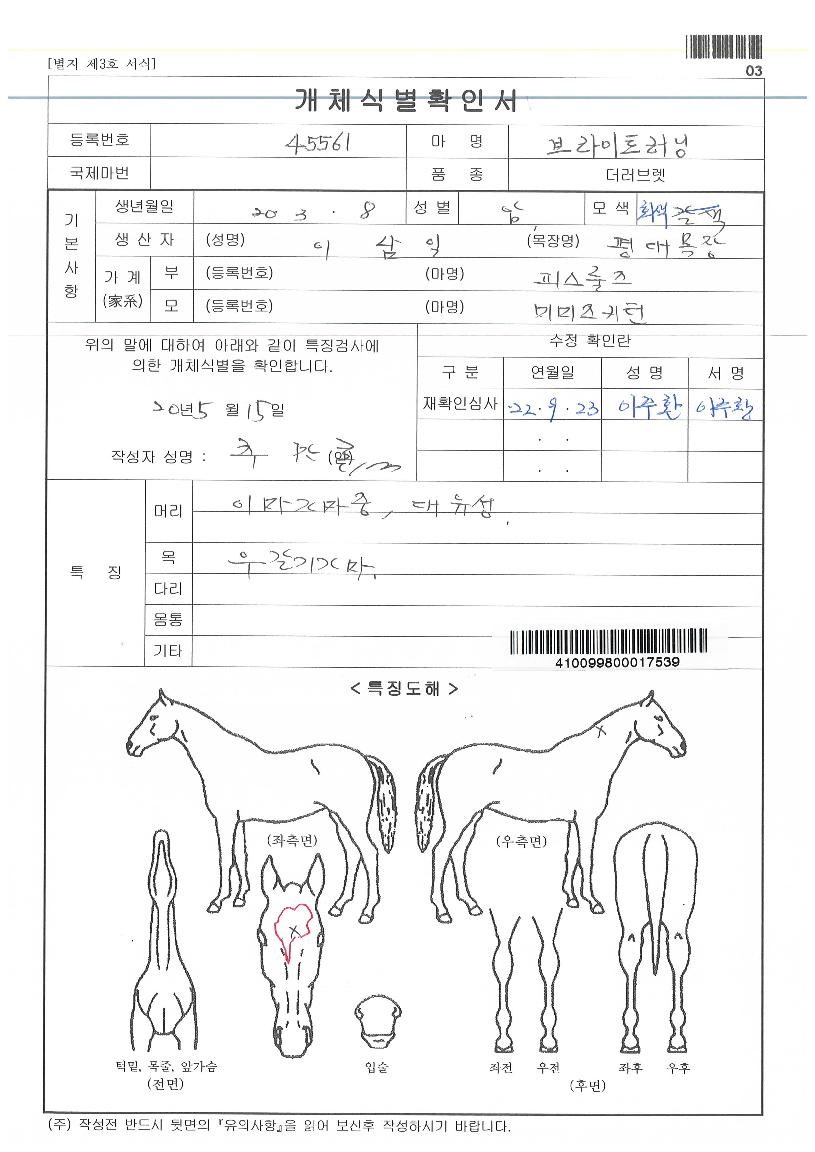 [별지 제3호 서식]
03
개체식별확인서
등록번호 45561 마 명 브라이트러닝
국제마번 품 종 더러브렛
기본사항
생년월일 20 3 . 8 성 별 암 모 색 회색 갈색
생 산 자 (성명) 이 삼 일 (목장명) 평대목장
가 계 (家系) 부 (등록번호) (마명) 피스룰즈
모 (등록번호) (마명) 미미즈키턴
위의 말에 대하여 아래와 같이 특징검사에
의한 개체식별을 확인합니다.
20년 5 월 15 일
작성자 성명 : (인)
수정 확인란
구 분 연월일 성 명 서 명
재확인심사 22 . 9 . 23 이주환 이주환
. .
. .
특 징
머리 이마가마중, 대유성.
목 우갈기가마.
다리
몸통
기타
410099800017539
< 특징도해 >
(좌측면) (우측면)
턱밑, 목줄, 앞가슴
(전면)
입술
좌전 우전 좌후 우후
(후면)
(주) 작성전 반드시 뒷면의 『유의사항』을 읽어 보신후 작성하시기 바랍니다.